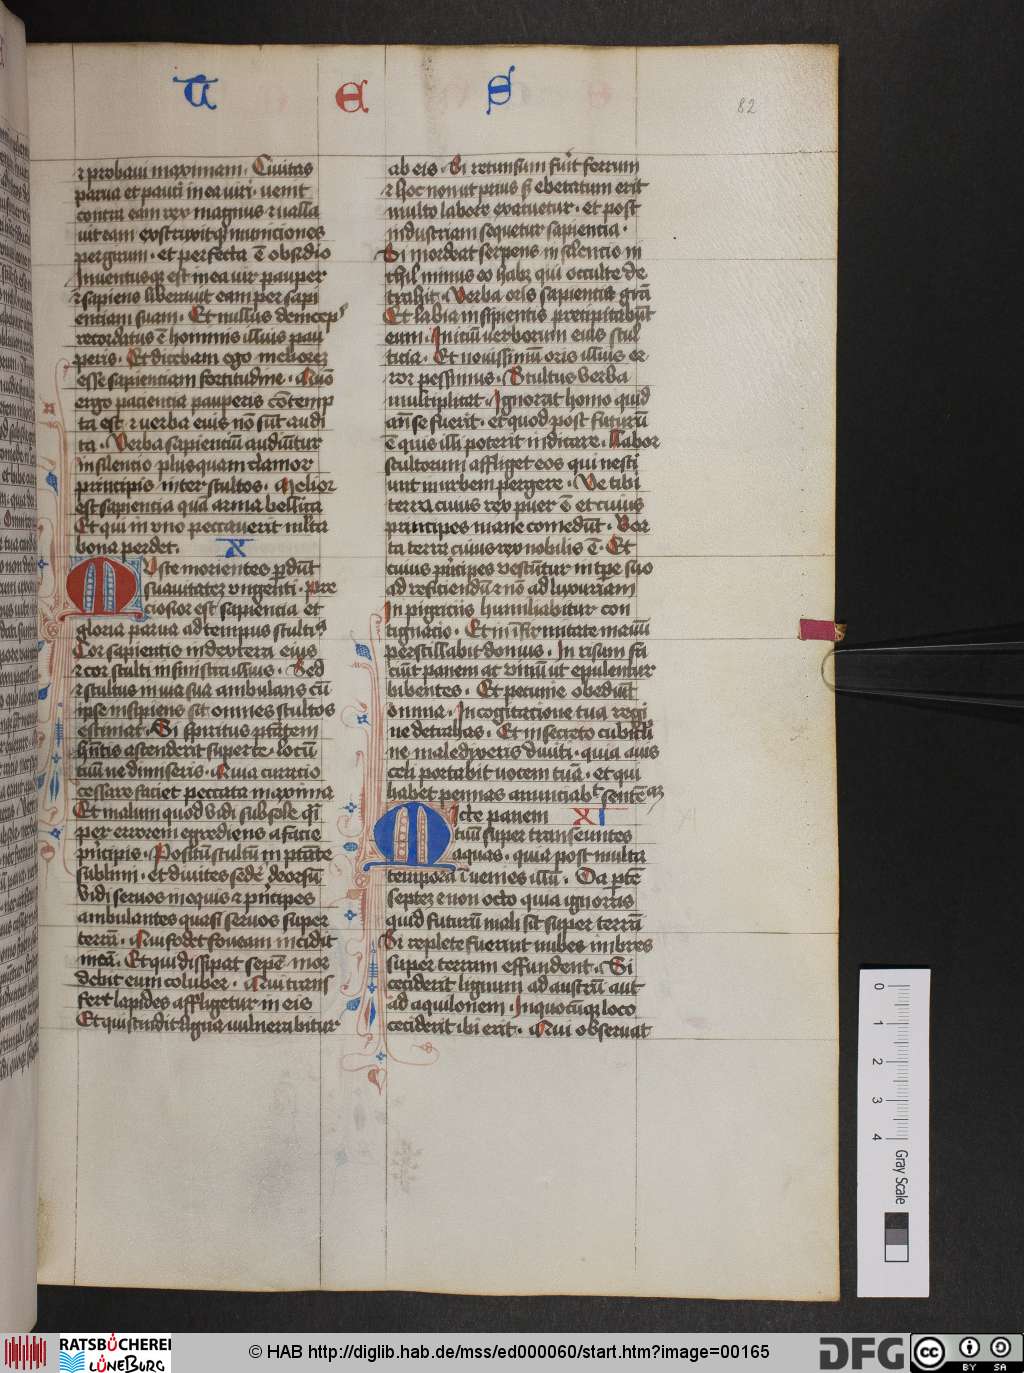 T E S
82
⁊ probaui maximam. Ciuitas
parua et pauci in ea viri. venit
contra eam rex magnus ⁊ valla
uit eam exstruxitq; municiones
per girum. et perfecta ē obsidio
Inuentusq; est in ea vir pauper
⁊ sapiens liberauit eam per sapi
entiam suam. Et nullus deincepˢ
recordatus ē hominis illius pau
peris. Et dicebam ego meliorē
esse sapientiam fortitudine. Quō
ergo pacientia pauperis cōtemp
ta est ⁊ verba eius nō sūt audi
ta. Verba sapientiū audiūtur
in silencio plusquam clamor
principis inter stultos. Melior
est sapiencia quā arma bellica
Et qui in vno peccauerit mlta
bona perdet. X
Uste morientes pdūt
suauitatez vngenti. Pre
ciosior est sapiencia et
gloria parua ad tempus stulti⁹
Cor sapientis in dextera eius
⁊ cor stulti in sinistra illius. Sed
⁊ stultus in via sua ambulans cū
ipse insipiens sit omnes stultos
estimat. Si spiritus ptātem
hn̄tis ascenderit super te. locū
tuū ne dimiseris. Quia curacio
cessare faciet peccata maxima
Et malum quod vidi sub sole q̄i
per errorem egrediens a facie
pncipis. Positū stultū in ptāte
sublimi. et diuites sedē deorsū
Vidi seruos in equis ⁊ pncipes
ambulantes quasi seruos super
terrā. Qui fodet foueam incidit
in eā. Et qui dissipat sepē mor
debit eum coluber. Qui trans
fert lapides affligetur in eis
Et qui scindit ligna vulnerabitur
ab eis. Si retunsum fuit ferrum
⁊ hoc non ut prius s; ebetatum erit
multo labore exacuetur. et post
industriam sequetur sapiencia.
Si mordeat serpens in silencio ni
chil minus eo habz qui occulte de
trahit. Verba oris sapientis grā
Et labia insipientis precipitabūt
eum. Iniciū verborum eius stul
ticia. Et nouissimū oris illius er
ror pessimus. Stultus verba
multiplicat. Ignorat homo quid
an̄ se fuerit. et quod post futurū
ē quis illi poterit indicare. Labor
stultorum affliget eos qui nesci
unt in urbem pergere. Ve tibi
terra cuius rex puer ē et cuius
principes mane comedūt. Bea
ta terra cuius rex nobilis ē. Et
cuius pncipes vescūtur in tpe suo
ad reficiendū ⁊ nō ad luxuriam
In pigriciis humiliabitur con
tignacio. Et in īfirmitate manuū
perstillabit domus. In risum fa
ciūt panem ac vinū ut epulentur
bibentes. Et pecunie obediūt
omnia. In cogitacione tua regi
ne detrahas. Et in secreto cubiculi
ne maledixeris diuiti. quia auis
celi portabit vocem tuā. et qui
habet pennas annunciabᵗ sentē
M icte panem XI
tuū super transeuntes
aquas. quia post multa
tempora īuenies illū. Da ptē
septez ⁊ non octo quia ignoras
quid futurū mali sit super terrā
Si replete fuerint nubes imbres
super terram effundent. Si
ceciderit lignum ad austrū aut
ad aquilonem. In quocūq; loco
ceciderit ibi erit. Qui obseruat
0 1 2 3 4
Gray Scale
RATSBÜCHEREI
LÜNEBURG
© HAB http://diglib.hab.de/mss/ed000060/start.htm?image=00165
DFG
cc BY SA